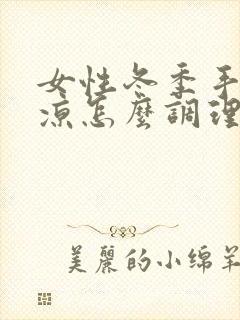 女性冬季手
涼怎麼調理
美麗的小绵羊